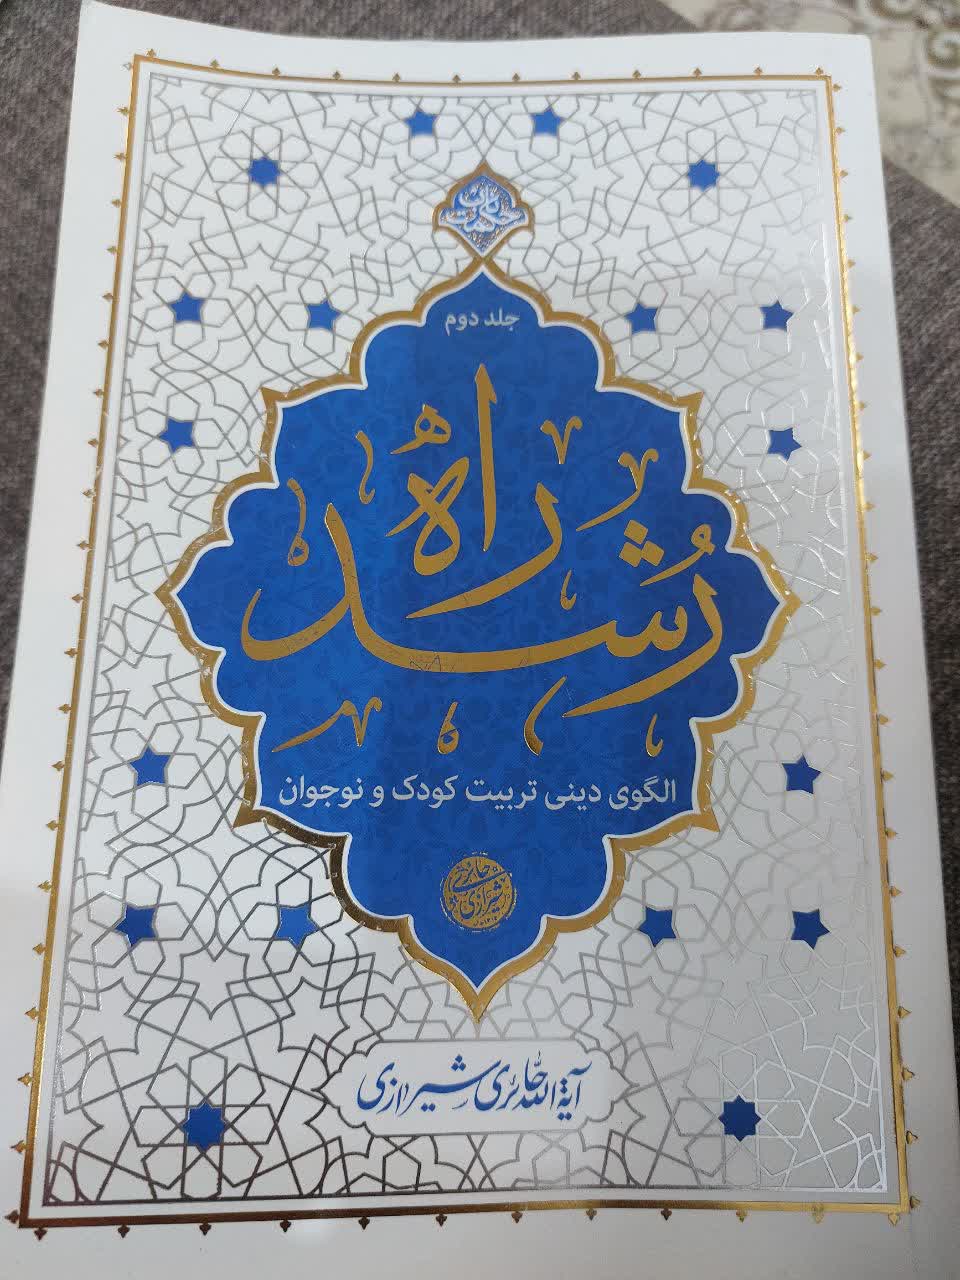 جلد دوم
راه
رُشد
الگوی دینی تربیت کودک و نوجوان
حائری
شیرازی
آیة الله حائری شیرازی